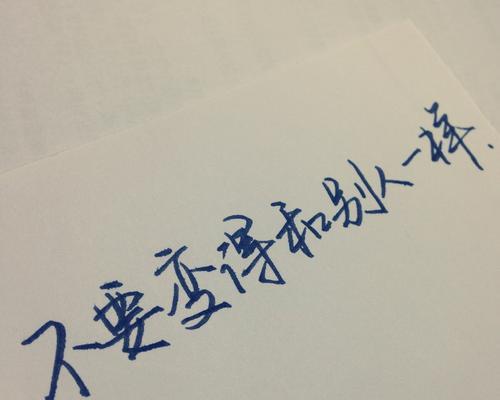 不要变得和别人一样.